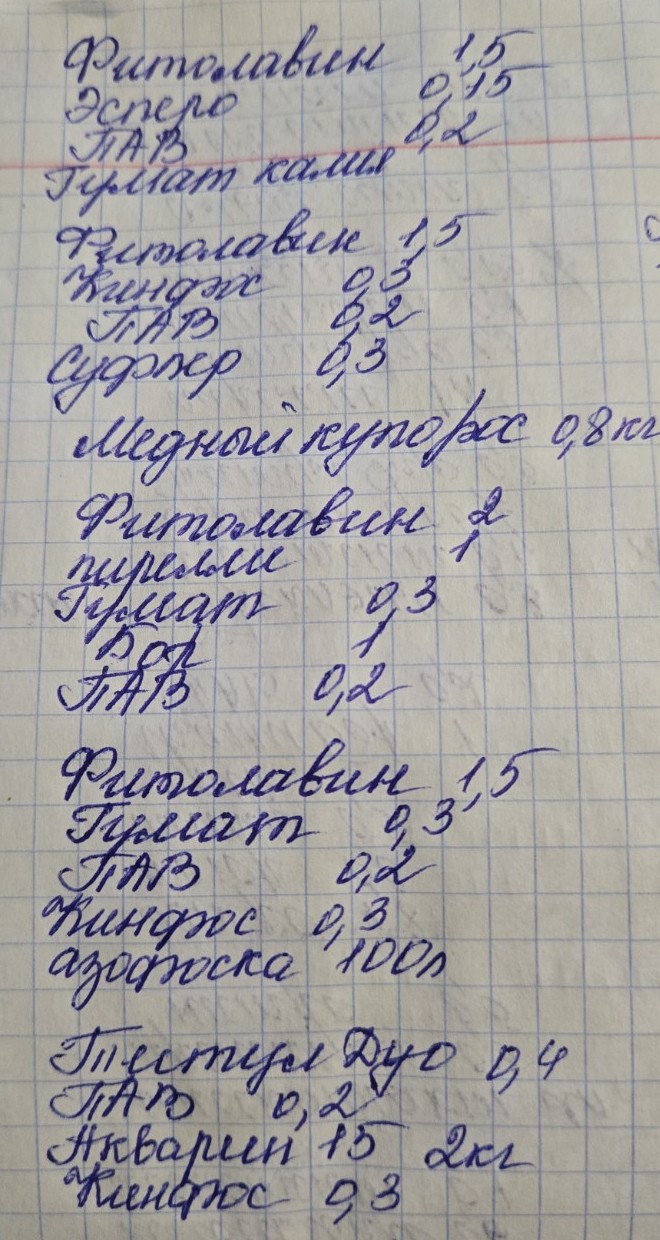 Фитолавин 1,5
Эсперо 0,15
ПАВ 0,2
Гумат калия
Фитолавин 1,5
Кинфос 0,3
ПАВ 0,2
Суфлер 0,3
Медный купорос 0,8кг
Фитолавин 2
пирелли 1
Гумат 0,3
Бор 1
ПАВ 0,2
Фитолавин 1,5
Гумат 0,3
ПАВ 0,2
Кинфос 0,3
азофоска 100л
Титул Дуо 0,4
ПАВ 0,2
Акварин 15 2кг
Кинфос 0,3